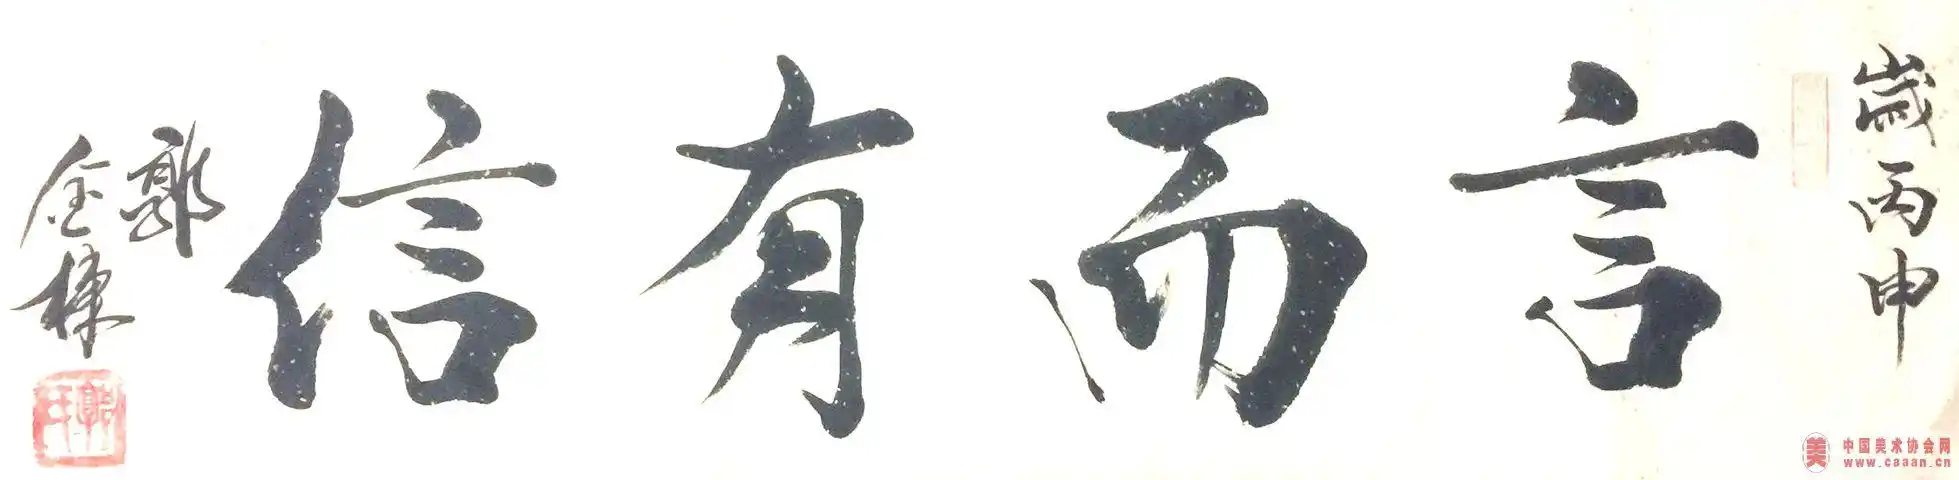 歲丙申
言而有信
郭
金棟
中国美术协会网
www.caaan.cn